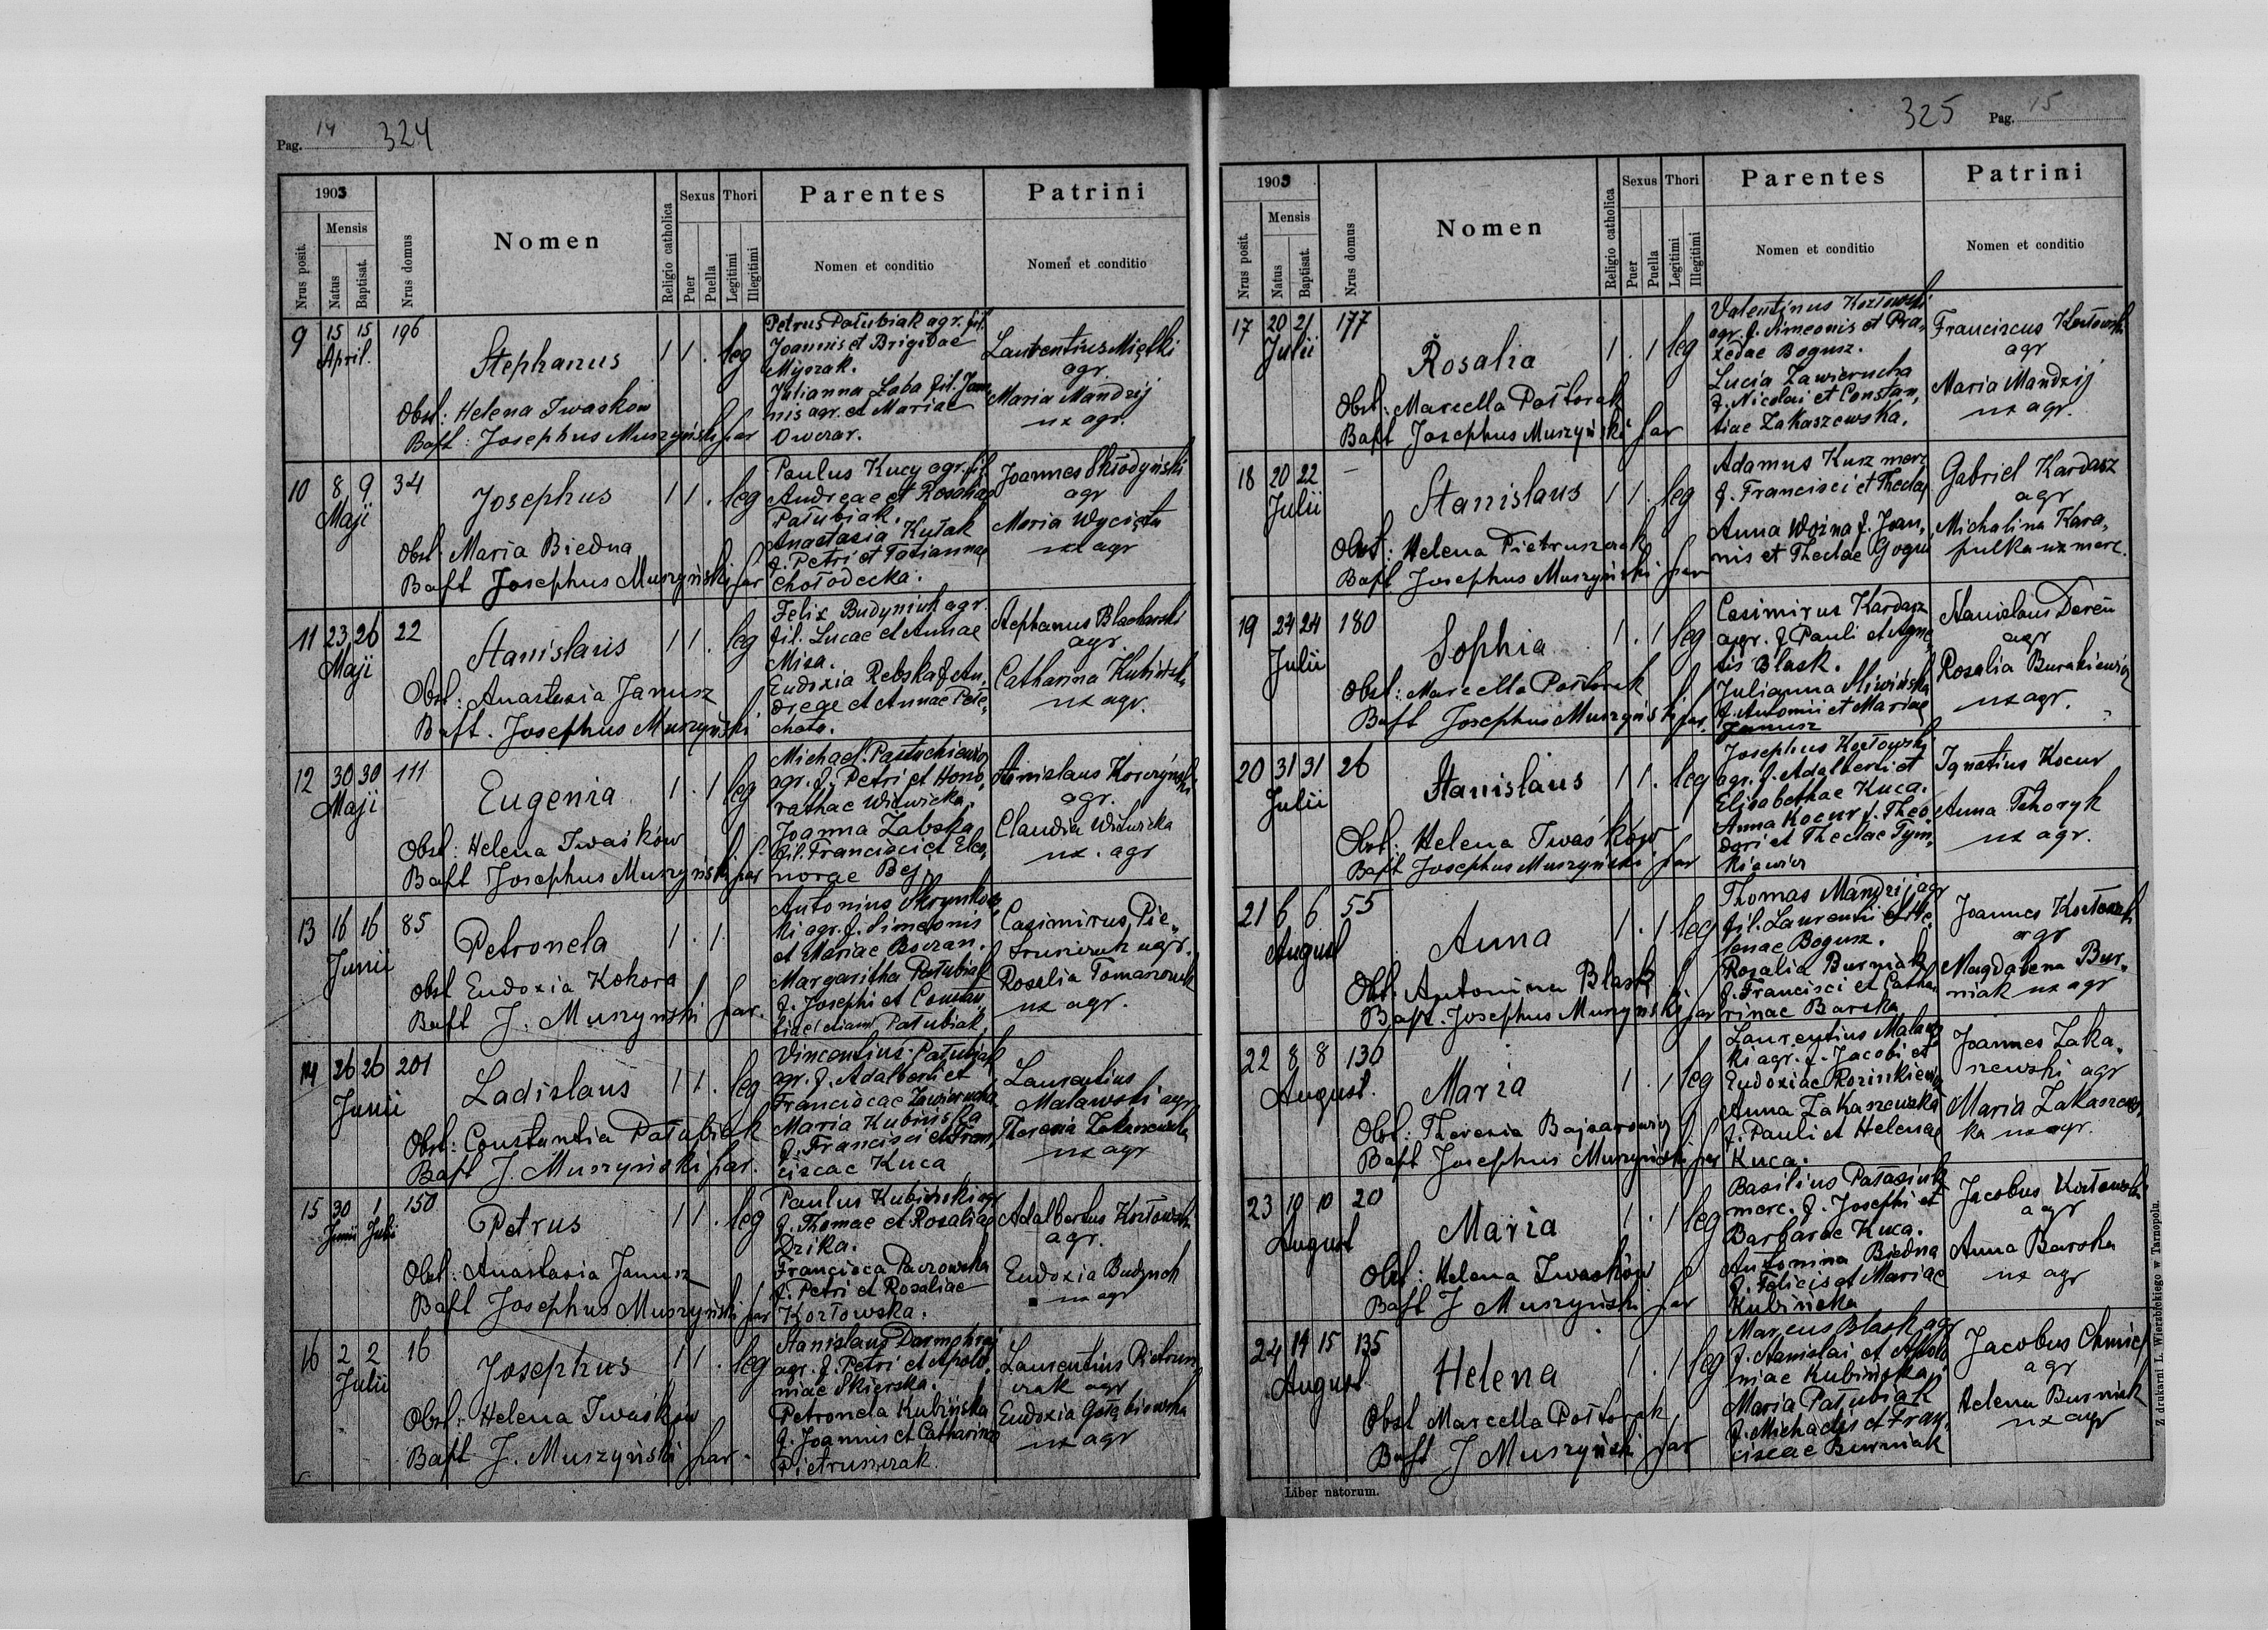 Pag. 14 324
1903
Nrus posit.
Mensis
Natus
Baptisat.
Nrus domus
Nomen
Religio catholica
Sexus
Puer
Puella
Thori
Legitimi
Illegitimi
Parentes
Nomen et conditio
Patrini
Nomen et conditio
9 15 15 196
April.
Stephanus 1 1 . leg
Obst: Helena Iwaskow
Bapt: Josephus Muszyński par
Petrus Pałubiak agr. fil.
Joannis et Brigidae
Myszak.
Julianna Łaba fil. Joan
nis agr. et Mariae
Owczar.
Laurentius Mielki
agr.
Maria Mandzij
ux agr.
10 8 9 34
Maji
Josephus 1 1 . leg
Obst: Maria Biedna
Bapt Josephus Muszyński par
Paulus Kucy agr. fil
Andreae et Rosaliae
Pałubiak.
Anastasia Kułak
f. Petri et Tatiannae
Chołodecka.
Joannes Skłodyński
agr
Maria
ux agr
11 23 26 22
Maji
Stanislaus 1 1 . leg
Obst: Anastasia Janusz
Bapt. Josephus Muszyński
Felix Budyniuk agr.
fil. Lucae et Annae
Misa.
Eudoxia Rebska f. An,
dreae et Annae Pele,
chata.
Stephanus Blacharski
agr.
Catharina Kubińska
ux agr.
12 30 30 111
Maji
Eugenia 1 . 1 leg
Obst: Helena Iwaśkow
Bapt Josephus Muszyński par
Michael Pastuchiewicz
agr. f. Petri et Hono,
rathae Witwicka.
Joanna Zabska
fil. Francisci et Eleo,
norae Bej.
Stanislaus Korczyński
agr.
Claudia Witwicka
ux. agr
13 16 16 85
Junii
Petronela 1 . 1
Obst Eudoxia Kohora
Bapt J. Muszyński par.
Antonius Skrynkow
ki agr. f. Simeonis
et Mariae
Margaritha Pałubiak
f. Josephi et Constan,
tiae etiam Pałubiak
Casimirus Pie,
agr.
Rosalia
ux agr.
14 26 26 201
Junii
Ladislaus 1 1 . leg
Obst: Constantia Pałubiak
Bapt J. Muszyński par.
Vincentius Pałubiak
agr. f. Adalberti et
Franciscae Zawierucha
Maria Kubińska
f. Francisci et Fran,
ciscae Kuca
Laurentius
Malawski agr
Theresia Zakaszewska
ux agr
15 30 1 150
Junii Julii
Petrus 1 1 . leg
Obst: Anastasia Janusz
Bapt Josephus Muszyński par
Paulus Kubiński agr
f. Thomae et Rosaliae
Dzika.
Francisca Paczowska
f. Petri et Rosaliae
Kozłowska.
Adalbertus Kozłowski
agr.
Eudoxia Budynch
ux agr
16 2 2 16
Julii
Josephus 1 1 . leg
Obst: Helena Iwaśkow
Bapt J. Muszyński par.
Stanislaus
agr. f. Petri et Apolo,
niae Skierska.
Petronela Kubińska
f. Joannis et Catharinae
Pietruszczak.
Laurentius Pietrusz
czak agr
Eudoxia Gołębiowska
ux agr
325 Pag. 15
1903
Nrus posit.
Mensis
Natus
Baptisat.
Nrus domus
Nomen
Religio catholica
Sexus
Puer
Puella
Thori
Legitimi
Illegitimi
Parentes
Nomen et conditio
Patrini
Nomen et conditio
17 20 21 177
Julii
Rosalia 1 . 1 leg
Obst: Marcella Połtorak
Bapt Josephus Muszyński par
Valentinus Kozłowski
agr. f. Simeonis et Pra,
xedae Bogusz.
Lucia Zawierucha
f. Nicolai et Constan,
tiae Zakaszewska.
Franciscus Kozłowski
agr
Maria Mandzij
ux agr.
18 20 22 –
Julii
Stanislaus 1 1 . leg
Obst: Helena Pietruszczak
Bapt Josephus Muszyński par
Adamus Kusz merc
f. Francisci et Theclae
Anna Woźna f. Joan,
nis et Theclae
Gabriel Kardasz
agr
Michalina Kara,
pulka ux merc.
19 24 24 180
Julii
Sophia 1 . 1 leg
Obst: Marcella Połtorak
Bapt Josephus Muszyński par.
Casimirus Kardasz
agr. f. Pauli et Agne
tis Blask.
Julianna Sliwińska
f. Antonii et Mariae
Janusz
Stanislaus Dereń
agr
Rosalia Burakiewicz
ux agr.
20 31 31 26
Julii
Stanislaus 1 1 . leg
Obst: Helena Iwaśkow
Bapt Josephus Muszyński par
Josephus Kozłowski
agr. f. Adalberti et
Elisabethae Kuca.
Anna Kocur f. Theo
dori et Theclae Tym,
kiewicz
Ignatius Kocur
Anna Tchoryk
ux agr.
21 6 6 55
August
Anna 1 . 1 leg
Obst: Antonina Blask
Bapt. Josephus Muszyński par
Thomas Mandzij agr
fil. Laurentii et He,
lenae Bogusz.
Rosalia Burniak
f. Francisci et Catha
rinae Barska
Joannes Kozłowski
agr
Magdalena Bur,
niak ux agr
22 8 8 130
August.
Maria 1 . 1 leg
Obst: Theresia Bajzarowicz
Bapt Josephus Muszyński par
Laurentius Malaws
ki agr. f. Jacobi et
Eudoxiae Rozinkiewicz
Anna Zakaszewska
f. Pauli et Helenae
Kuca.
Joannes Zaka,
szewski agr
Maria Zakaszews
ka ux agr.
23 10 10 20
August
Maria 1 . 1 leg
Obst: Helena Iwaśków
Bapt J Muszyński par
Basilius Pałasiuk
merc. f. Josephi et
Barbarae Kuca.
Antonina Biedna
f. Felicis et Mariae
Kubińska
Jacobus Kozłowski
agr
Anna Barska
ux agr
24 14 15 135
August
Helena 1 . 1 leg
Obst Marcella Połtorak
Bapt J Muszyński par
Marcus Blask agr
f. Stanislai et Apolo
niae Kubińska
Maria Pałubiak
f. Michaelis et Fran,
ciscae Burniak
Jacobus Chmiel
agr
Helena Burniak
ux agr
Liber natorum.
Z drukarni L. Wierzbickiego w Tarnopolu.